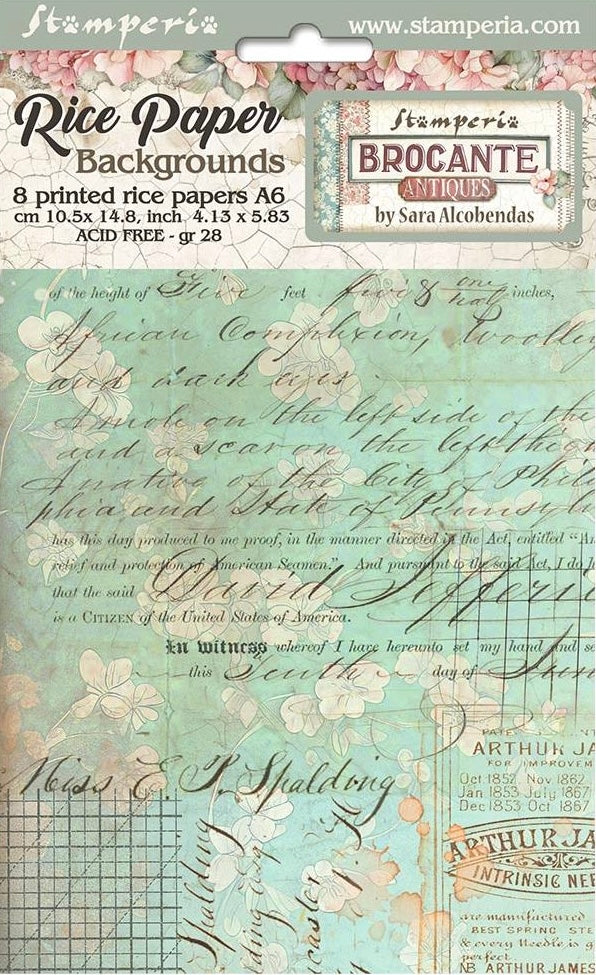 Stamperia
www.stamperia.com
Rice Paper
Backgrounds
8 printed rice papers A6
cm 10.5x 14.8, inch 4.13 x 5.83
ACID FREE - gr 28
Stamperia
BROCANTE
ANTIQUES
by Sara Alcobendas
of the height of Five feet five & one half inches,
African Complexion, Woolley
and dark eyes
A mole on the left side of the
and a scar on the left thigh
A native of the City of Phil
phia and State of Pennsylv
has this day produced to me proof, in the manner directed in the Act, entitled "An
relief and protection of American Seamen." And pursuant to the said Act, I do h
that the said David Jefferi
is a CITIZEN of the United States of America.
In witness whereof I have hereunto set my hand and se
this Tenth day of June
Miss E. P. Spalding
Spalding
PATE
ARTHUR JA
FOR IMPROVEM
Oct 1852 Nov 1862
Jan 1853 July 1867
Dec 1853 Oct 1867
ARTHUR JA
INTRINSIC NEE
are manufactured
BEST SPRING STE
& every Needle is g
perfect.
NB ARTHUR JAMES